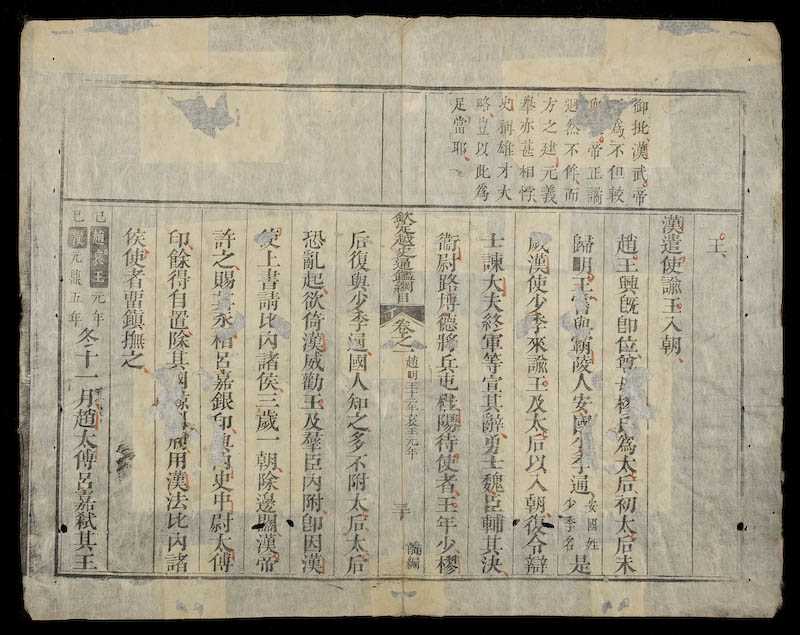 御批漢武帝
為不但較
帝正譎
迥然不侔而
方之建元義
舉亦甚相悖
史稱雄才大
略豈以此為
足當耶
王
漢遣使諭王入朝
趙王興既卽位尊母樛氏為太后初太后未
歸明王嘗與霸陵人安國少季通安國姓少季名是
歲漢使少季來諭王及太后以入朝復令辯
士諫大夫終軍等宣其辭勇士魏臣輔其決
衞尉路博德將兵屯桂陽待使者王年少樛
欽定越史通鑑綱目
卷之一
趙明王十二年哀王元年
前編
后復與少季通國人知之多不附太后太后
恐亂起欲倚漢威勸王及羣臣內附卽因漢
使上書請比內諸侯三歲一朝除邊關漢帝
許之賜其丞相呂嘉銀印與內史中尉太傅
印餘得自置除其用漢法比內諸
侯使者留鎮撫之
己巳趙哀王元年漢元鼎五年冬十一月趙太傅呂嘉弒其王